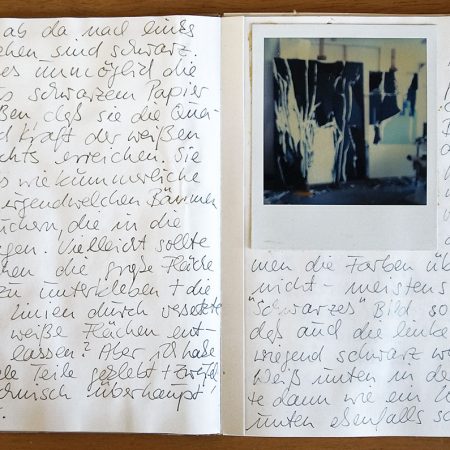 ab da nach links
sind schwarz.
es unmöglich die
s schwarzem Papier
ßen daß sie die Quer-
d Kraft der weißen
chts erreichen. Sie
s wie kümmerliche
irgendwelchen Bäumen
uchern, die in die
gen. Vielleicht sollte
hen die große Fläche
zu unterkleben + die
Linien durch versetzte
weiße Flächen ent-
lassen? Aber ich habe
le Teile geklebt + zweifel
chnisch überhaupt!
men die Farben üb
nicht - meistens
"Schwarzes" Bild, so
daß auch die linke
wiegend schwarz w
Weiß unten in de
te dann wie ein
unten ebenfalls sc